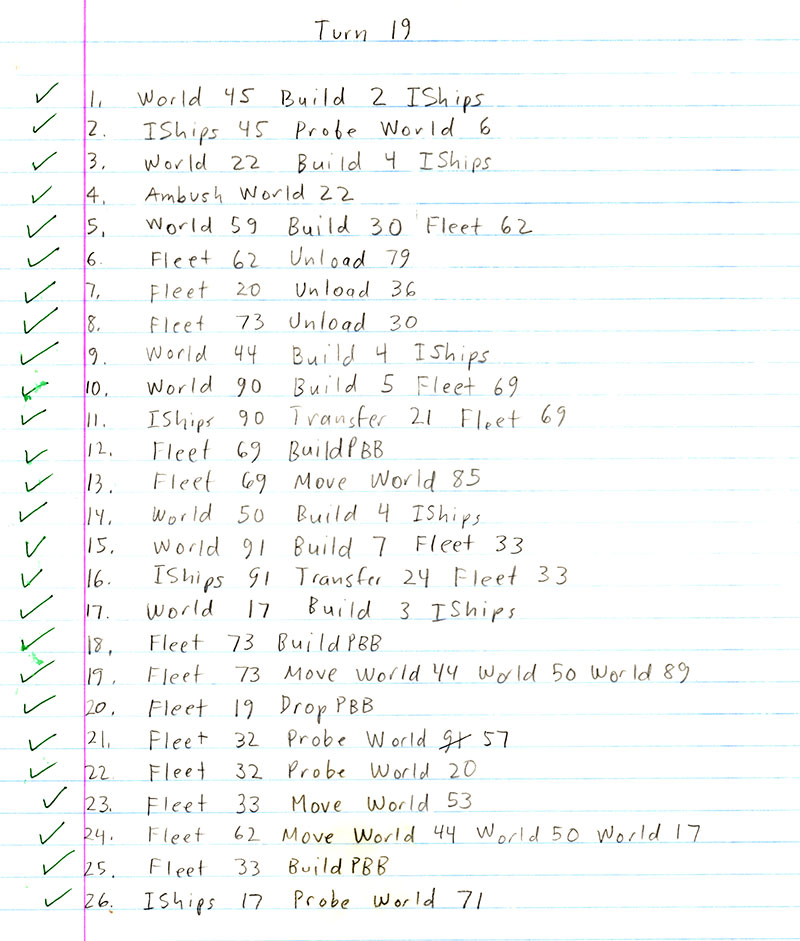 Turn 19
1. World 45 Build 2 IShips
2. IShips 45 Probe World 6
3. World 22 Build 4 IShips
4. Ambush World 22
5. World 59 Build 30 Fleet 62
6. Fleet 62 Unload 79
7. Fleet 20 Unload 36
8. Fleet 73 Unload 30
9. World 44 Build 4 IShips
10. World 90 Build 5 Fleet 69
11. IShips 90 Transfer 21 Fleet 69
12. Fleet 69 BuildPBB
13. Fleet 69 Move World 85
14. World 50 Build 4 IShips
15. World 91 Build 7 Fleet 33
16. IShips 91 Transfer 24 Fleet 33
17. World 17 Build 3 IShips
18. Fleet 73 BuildPBB
19. Fleet 73 Move World 44 World 50 World 89
20. Fleet 19 DropPBB
21. Fleet 32 Probe World 57
22. Fleet 32 Probe World 20
23. Fleet 33 Move World 53
24. Fleet 62 Move World 44 World 50 World 17
25. Fleet 33 BuildPBB
26. IShips 17 Probe World 71